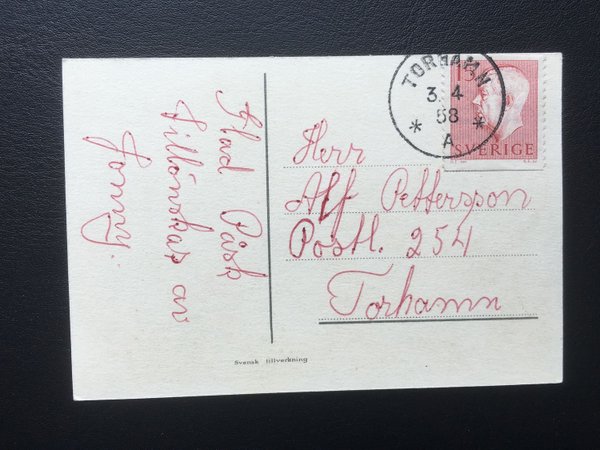 Glad Påsk
tillönskas av
Jonny.
TORHAMN
3 4
58
* *
A
15
SVERIGE
Herr
Alf Pettersson
Postl. 254
Torhamn
Svensk tillverkning